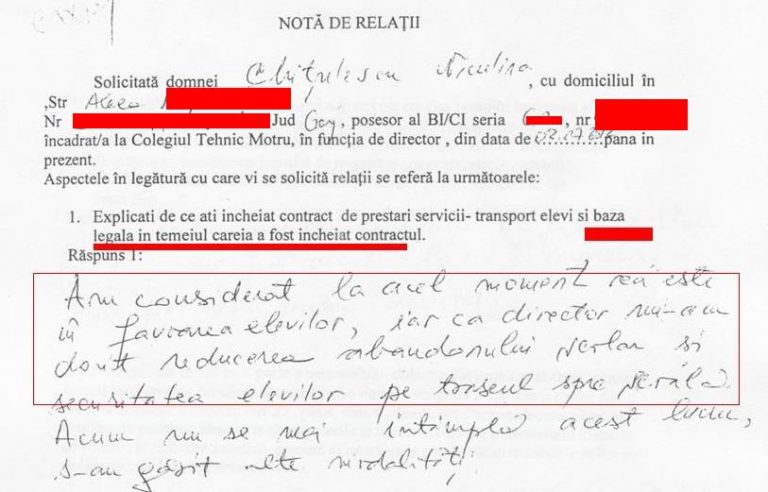 NOTĂ DE RELAȚII
Solicitată domnei Chitulescu Niculina, cu domiciliul în
,Str Aleea
Nr Jud Gorj, posesor al BI/CI seria , nr
încadrat/a la Colegiul Tehnic Motru, în funcția de director , din data de 02.07.2012 pana in
prezent.
Aspectele în legătură cu care vi se solicită relații se referă la următoarele:
1. Explicati de ce ati incheiat contract de prestari servicii- transport elevi si baza
legala in temeiul careia a fost incheiat contractul.
Răspuns 1:
Am considerat la acel moment că este
în favoarea elevilor, iar ca director mi-am
dorit reducerea abandonului școlar și
securitatea elevilor pe traseul spre școală.
Acum nu se mai întâmplă acest lucru,
s-au găsit alte modalități.